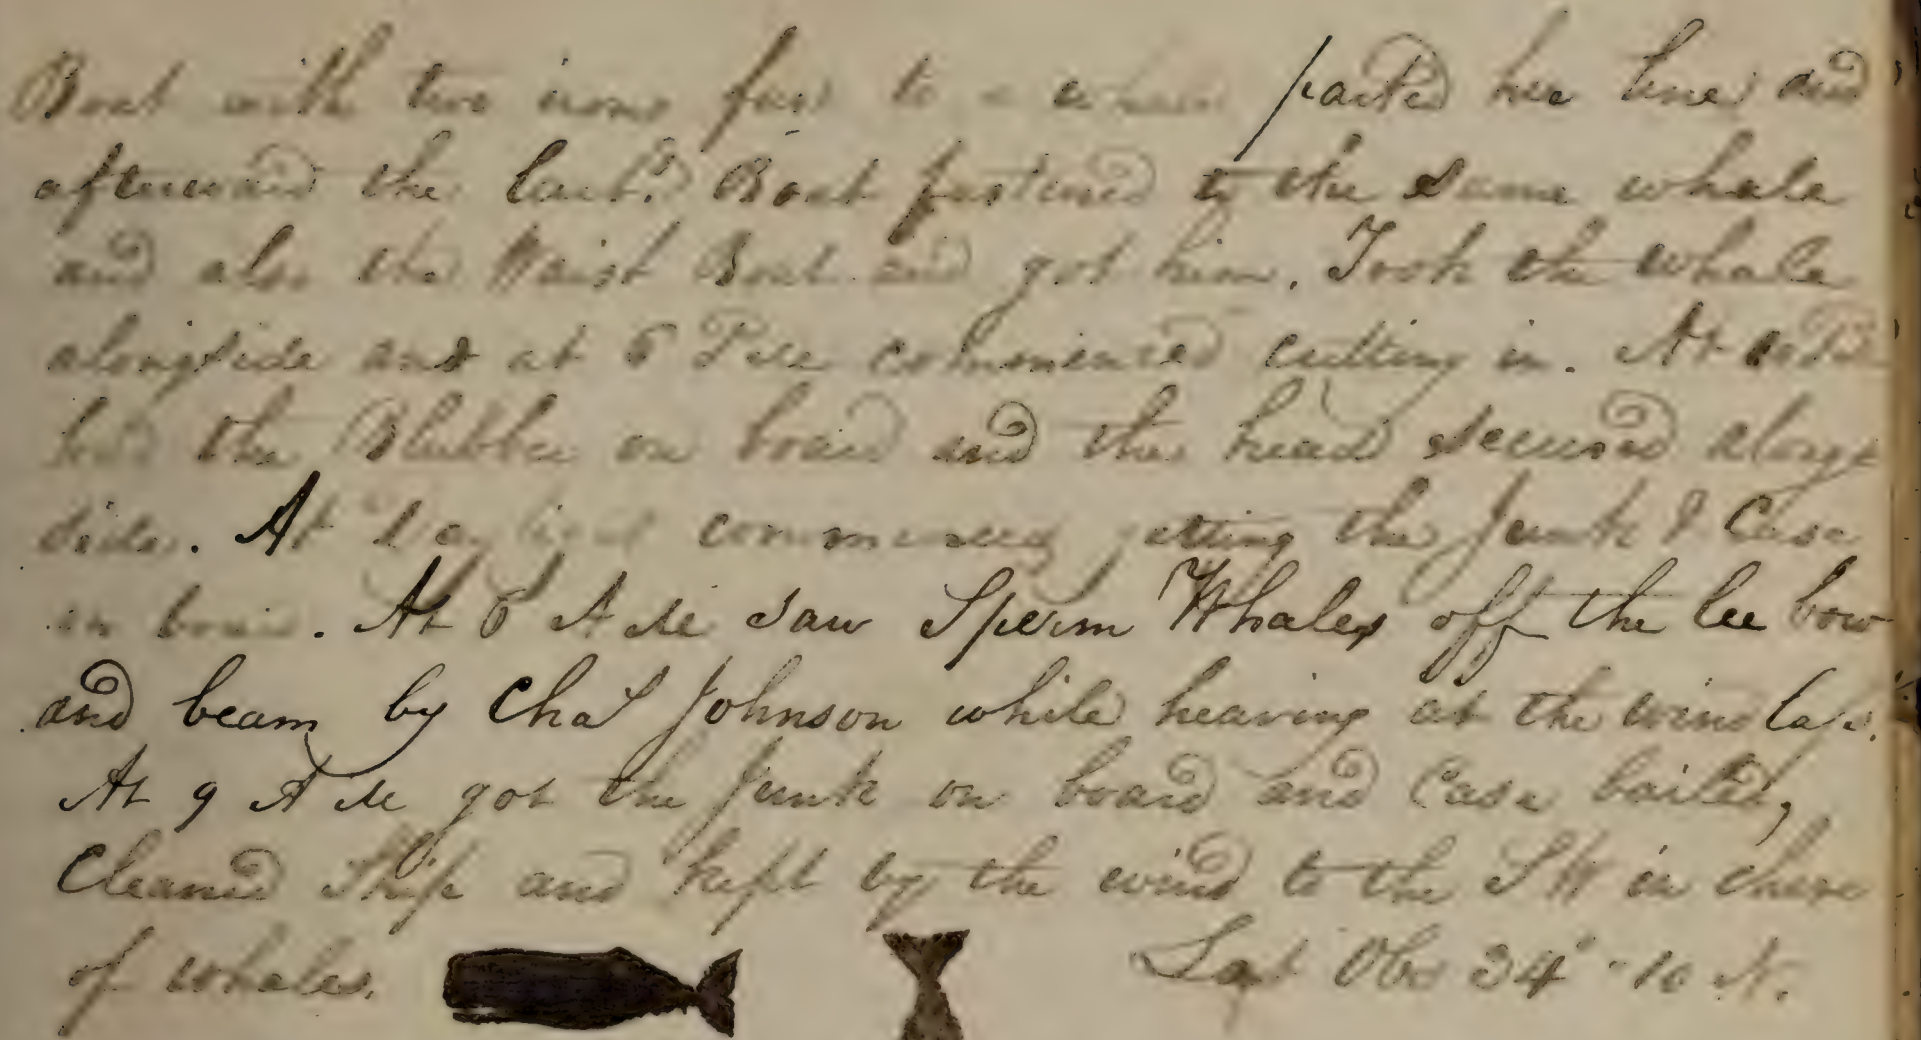 Boat with two irons fast to a whale parted her line and
afterward the Larb.d Boat fastened to the same whale
and also the Waist Boat and got him. Took the whale
alongside and at 6 P M commenced cutting in. At P M
had the Blubber on board and the head secured along
side. At daylight commenced getting the Junk & Case
on board. At 6 A M saw Sperm Whales off the lee bow
and beam by Chas Johnson while heaving at the windlass.
At 9 A M got the Junk on board and Case bailed,
Cleaned Ship and kept by the wind to the SW in chase
of whales. Lat Obs 34° 10 N.